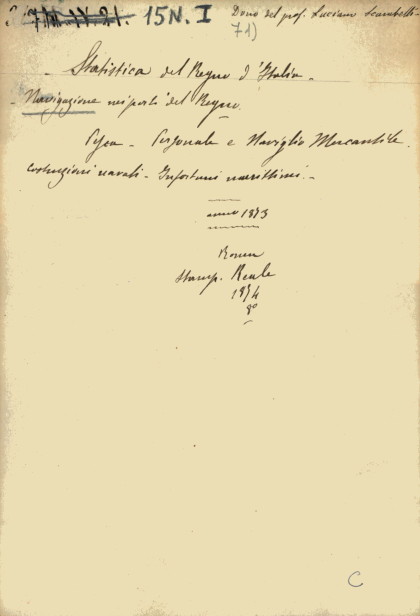 15 N. I
Dono del prof. Luciano Scarabelli
71)
Statistica del Regno d'Italia.
Navigazione nei porti del Regno.
Pesca - Personale e Naviglio Mercantile.
costruzioni navali - Infortuni marittimi. -
anno 1873
Roma
Stamp. Reale
1874
8º
C